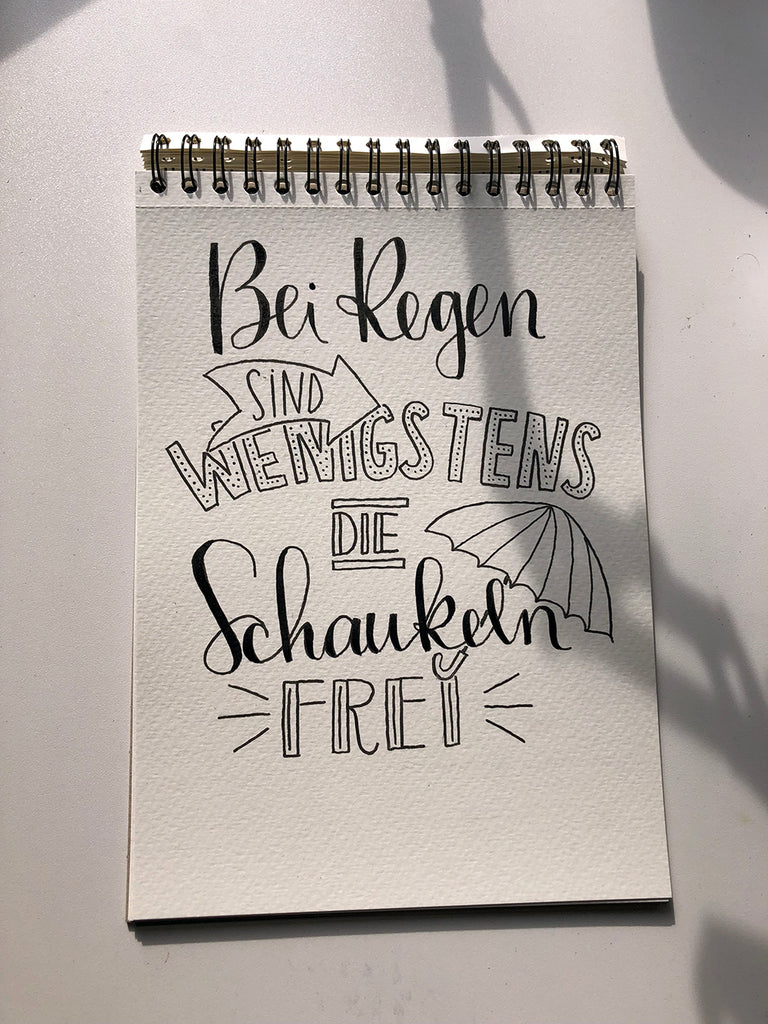 Bei Regen
SIND
WENIGSTENS
DIE
Schaukeln
FREI